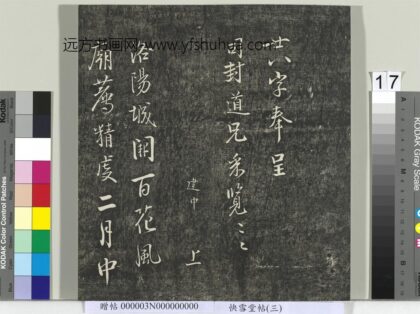 十六字奉呈
司封道兄采覽
建中 上
洛陽城開百花風
廟薦精虔二月中
远方书画网 www.yfshuhua.com
17
KODAK Color Control Patches
KODAK Gray Scale
贈帖 000003N000000000
快雪堂帖(三)